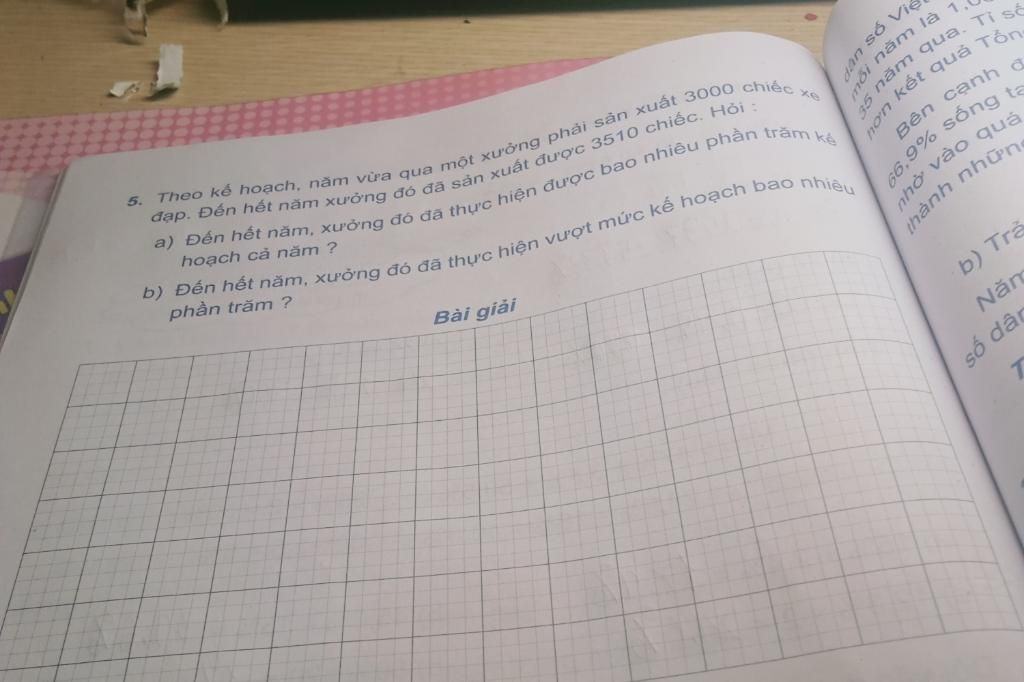 5. Theo kế hoạch, năm vừa qua một xưởng phải sản xuất 3000 chiếc xe
đạp. Đến hết năm xưởng đó đã sản xuất được 3510 chiếc. Hỏi :
a) Đến hết năm, xưởng đó đã thực hiện được bao nhiêu phần trăm kế
hoạch cả năm ?
b) Đến hết năm, xưởng đó đã thực hiện vượt mức kế hoạch bao nhiêu
phần trăm ?
Bài giải
dân số Việt
mỗi năm là 1,0
35 năm qua. Tỉ số
hơn kết quả Tổng
Bên cạnh đ
66,9% sống tạ
nhờ vào quá
thành những
b) Trả
Năm
số dân